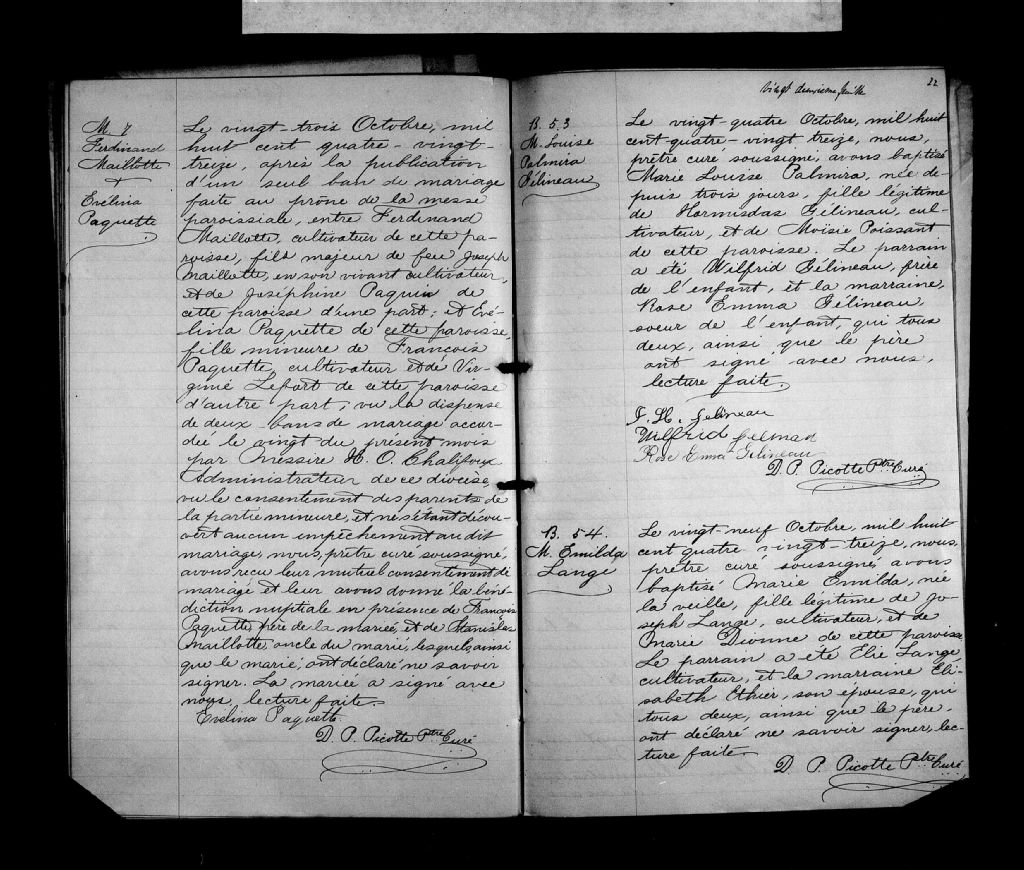 M. 7
Ferdinand
Maillotte
+
Evelina
Paquette
Le vingt-trois Octobre, mil
huit cent quatre-vingt-
treize, après la publication
d'un seul ban de mariage
faite au prône de la messe
paroissiale, entre Ferdinand
Maillotte, cultivateur de cette pa-
roisse, fils majeur de feu Joseph
Maillotte, en son vivant cultivateur,
et de Joséphine Paquin de
cette paroisse d'une part; et Évé-
lina Paquette de cette paroisse,
fille mineure de François
Paquette, cultivateur et de Vir-
ginie Lefort de cette paroisse
d'autre part; vu la dispense
de deux bans de mariage accor-
dée le vingt du présent mois
par Messire H. O. Chalifoux
Administrateur de ce diocèse,
vu le consentement des parents de
la partie mineure, et ne s'étant décou-
vert aucun empêchement au dit
mariage, nous, prêtre curé soussigné,
avons reçu leur mutuel consentement de
mariage et leur avons donné la béné-
diction nuptiale en présence de François
Paquette, père de la mariée, et de Stanislas
Maillotte, oncle du marié, lesquels ainsi
que le marié, ont déclaré ne savoir
signer. La mariée a signé avec
nous, lecture faite.
Evelina Paquette
D. P. Picotte Ptre Curé
Vingt deuxième feuille
22
B. 53
M. Louise
Palmira
Gélineau
Le vingt-quatre Octobre, mil huit
cent quatre-vingt treize, nous,
prêtre curé soussigné, avons baptisé
Marie Louise Palmira, née de-
puis trois jours, fille légitime
de Hormisdas Gélineau, cul-
tivateur, et de Moisie Poissant
de cette paroisse. Le parrain
a été Wilfrid Gélineau, frère
de l'enfant, et la marraine,
Rose Emma Gélineau,
soeur de l'enfant, qui tous
deux, ainsi que le père
ont signé avec nous,
lecture faite.
J. H. Gelineau
Wilfrid Gelinau
Rose Emma Gélineau
D. P. Picotte Ptre Curé
B. 54.
M. Emilda
Lange
Le vingt-neuf Octobre, mil huit
cent quatre vingt-treize, nous,
prêtre curé soussigné, avons
baptisé Marie Emilda, née
la veille, fille légitime de Jo-
seph Lange, cultivateur, et de
Marie Dionne de cette paroisse.
Le parrain a été Elie Lange
cultivateur, et la marraine Eli-
sabeth Ethier, son épouse, qui
tous deux, ainsi que le père,
ont déclaré ne savoir signer, lec-
ture faite.
D. P. Picotte Ptre Curé